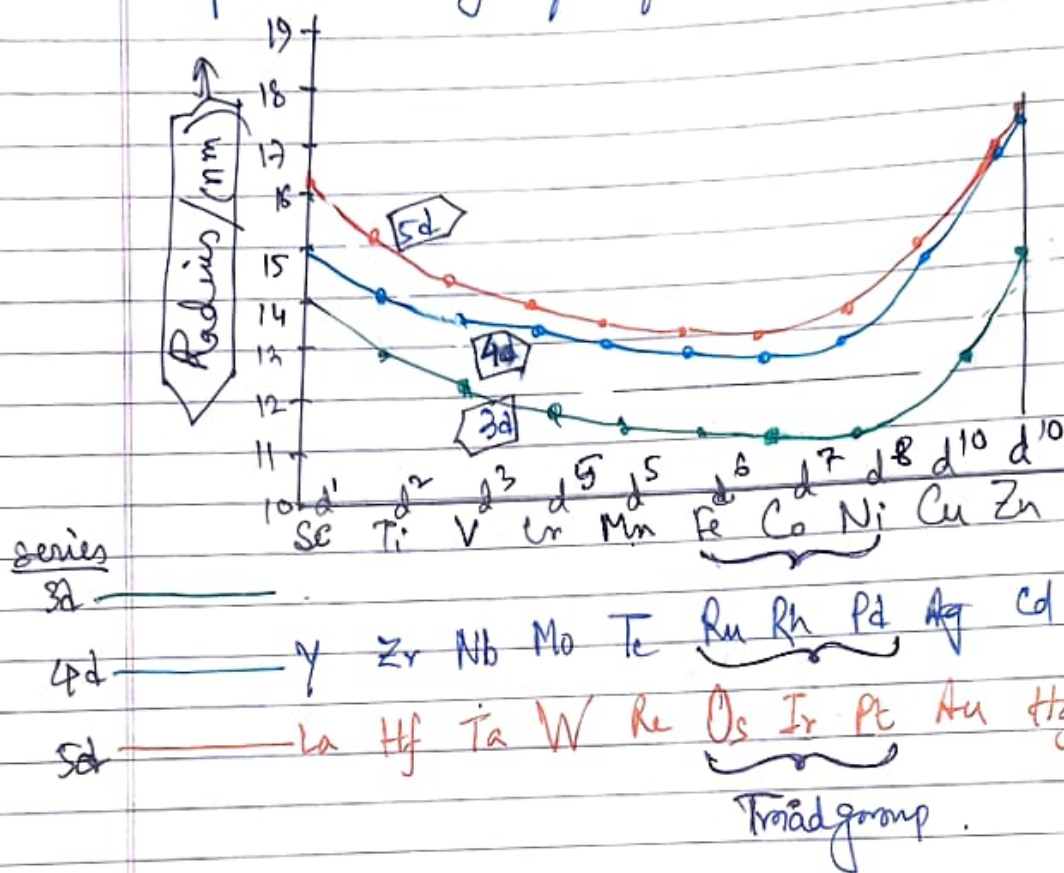 19
18
17
16
15
14
13
12
11
10
Radius/(nm)
5d
4d
3d
d¹ d² d³ d⁵ d⁵ d⁶ d⁷ d⁸ d¹⁰ d¹⁰
Sc Ti V Cr Mn Fe Co Ni Cu Zn
series
3d
4d Y Zr Nb Mo Tc Ru Rh Pd Ag Cd
5d La Hf Ta W Re Os Ir Pt Au
Triad group.